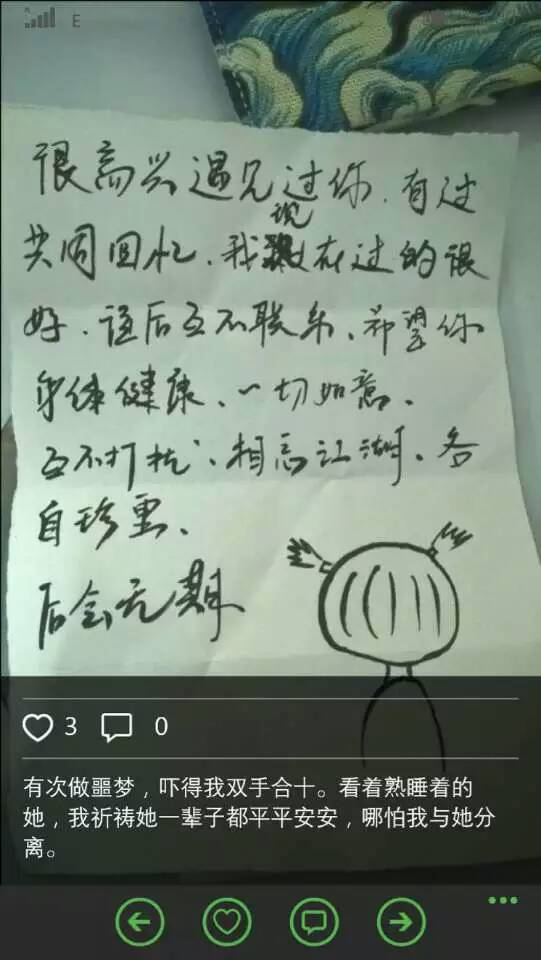 E
很高兴遇见过你、有过
共同回忆、我现在过的很
好、往后互不联系、希望你
身体健康、一切如意、
互不打扰、相忘江湖、各
自珍重、
后会无期
3 0
有次做噩梦，吓得我双手合十。看着熟睡着的
她，我祈祷她一辈子都平平安安，哪怕我与她分
离。